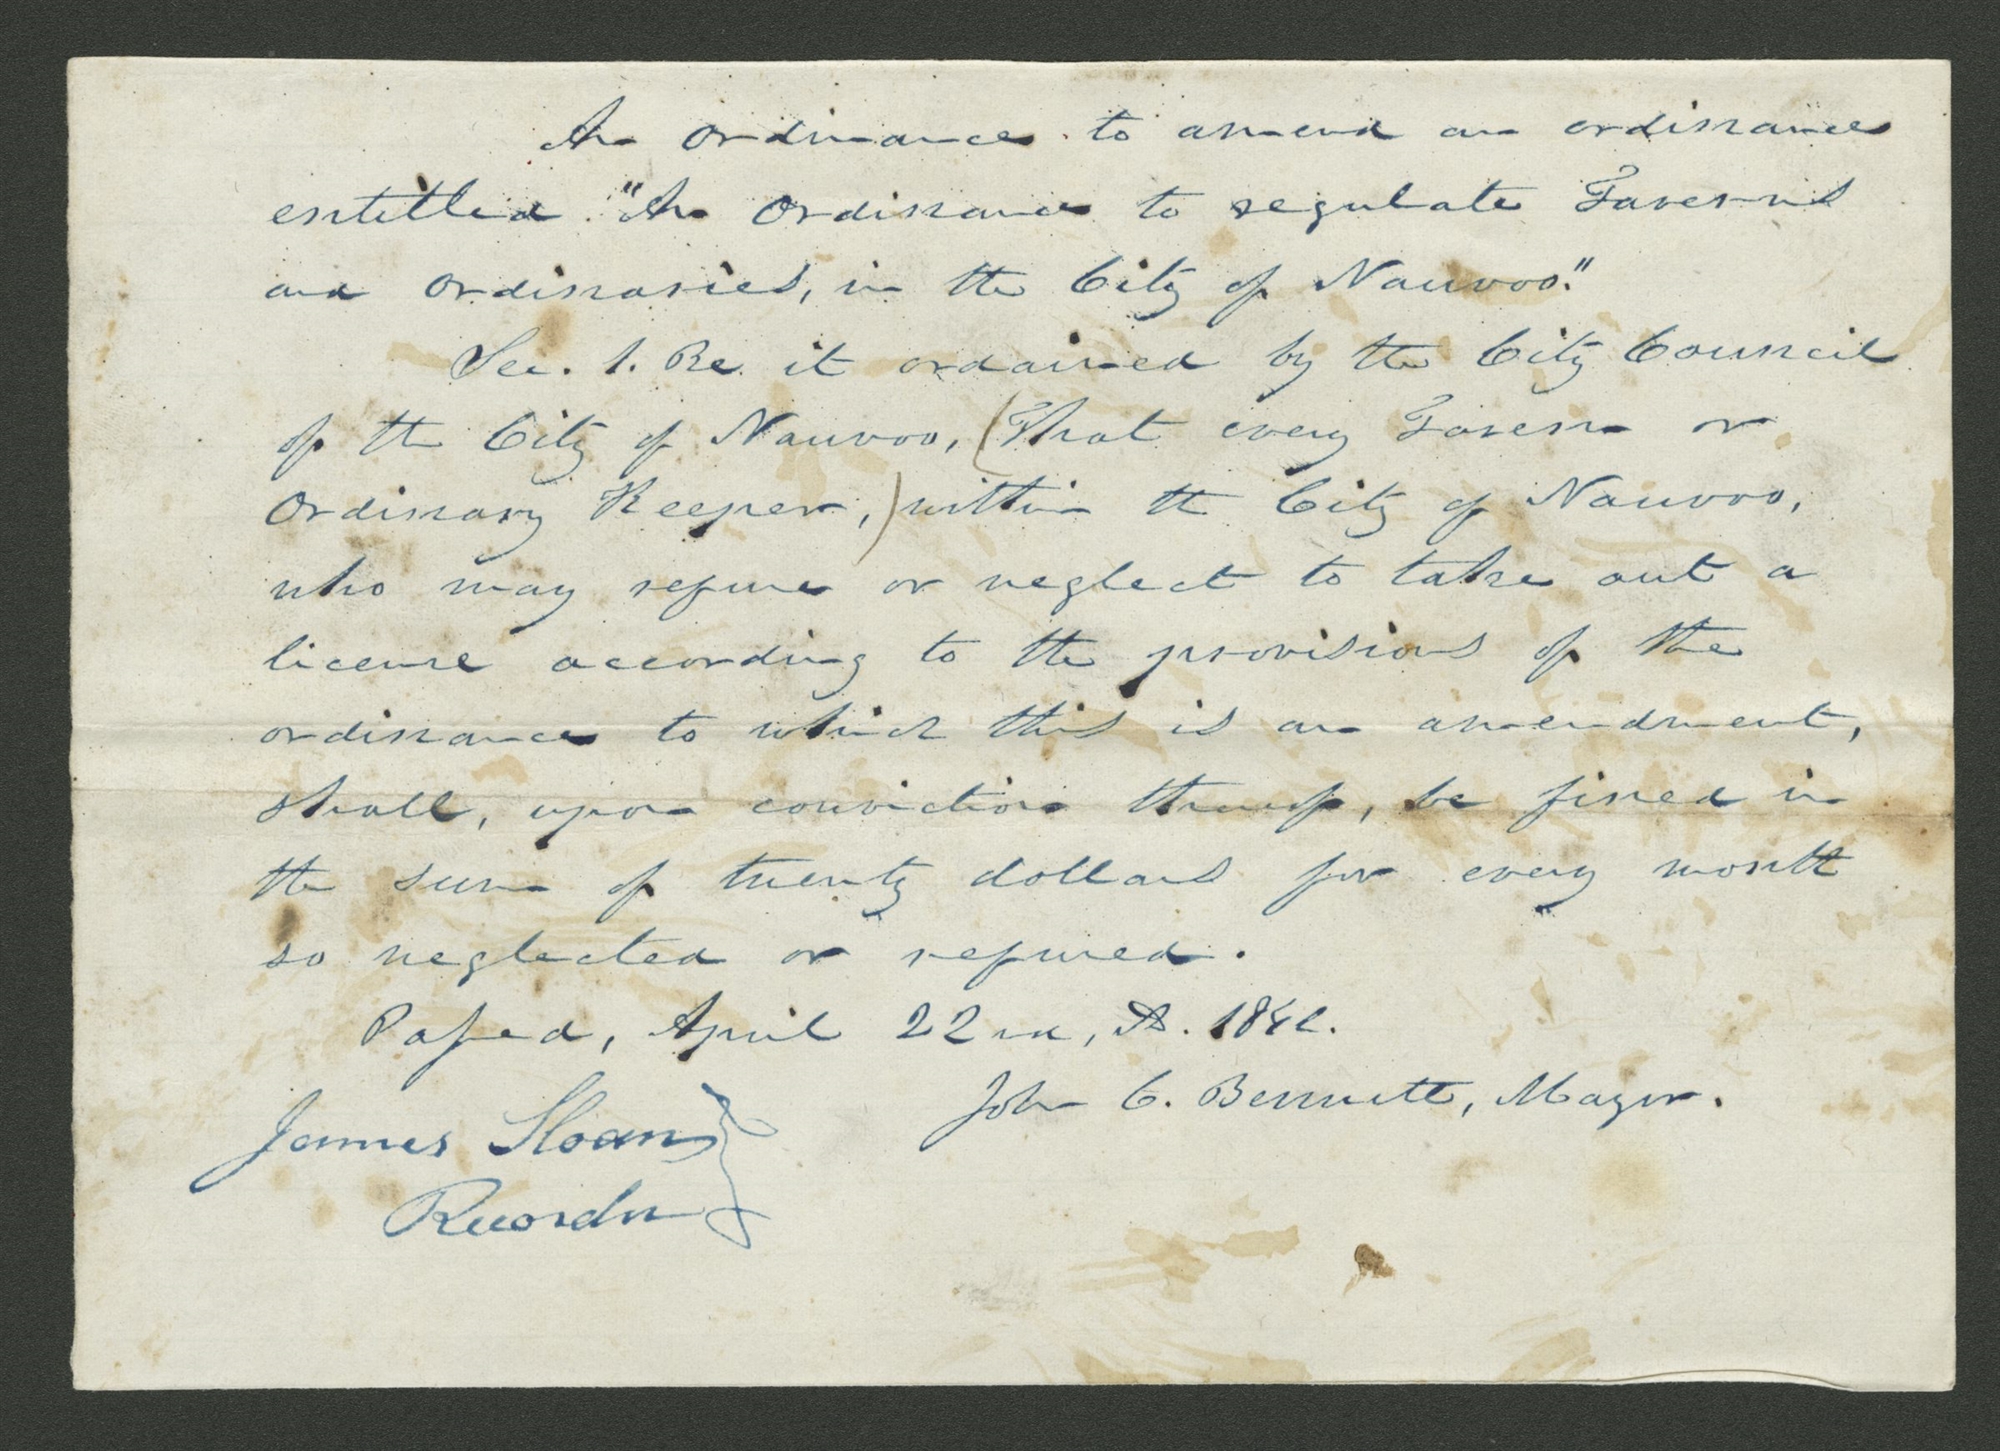 An Ordinance to amend an ordinance
entitled "An Ordinance to regulate Taverns
and Ordinaries, in the City of Nauvoo."
Sec. 1. Be it ordained by the City Council
of the City of Nauvoo, (That every Tavern or
Ordinary Keeper,) within the City of Nauvoo,
who may refuse or neglect to take out a
license according to the provisions of the
ordinance to which this is an amendment,
shall, upon conviction thereof, be fined in
the sum of twenty dollars for every month
so neglected or refused.
Passed, April 22nd, AD. 1842.
John C. Bennett, Mayor.
James Sloan
Recorder